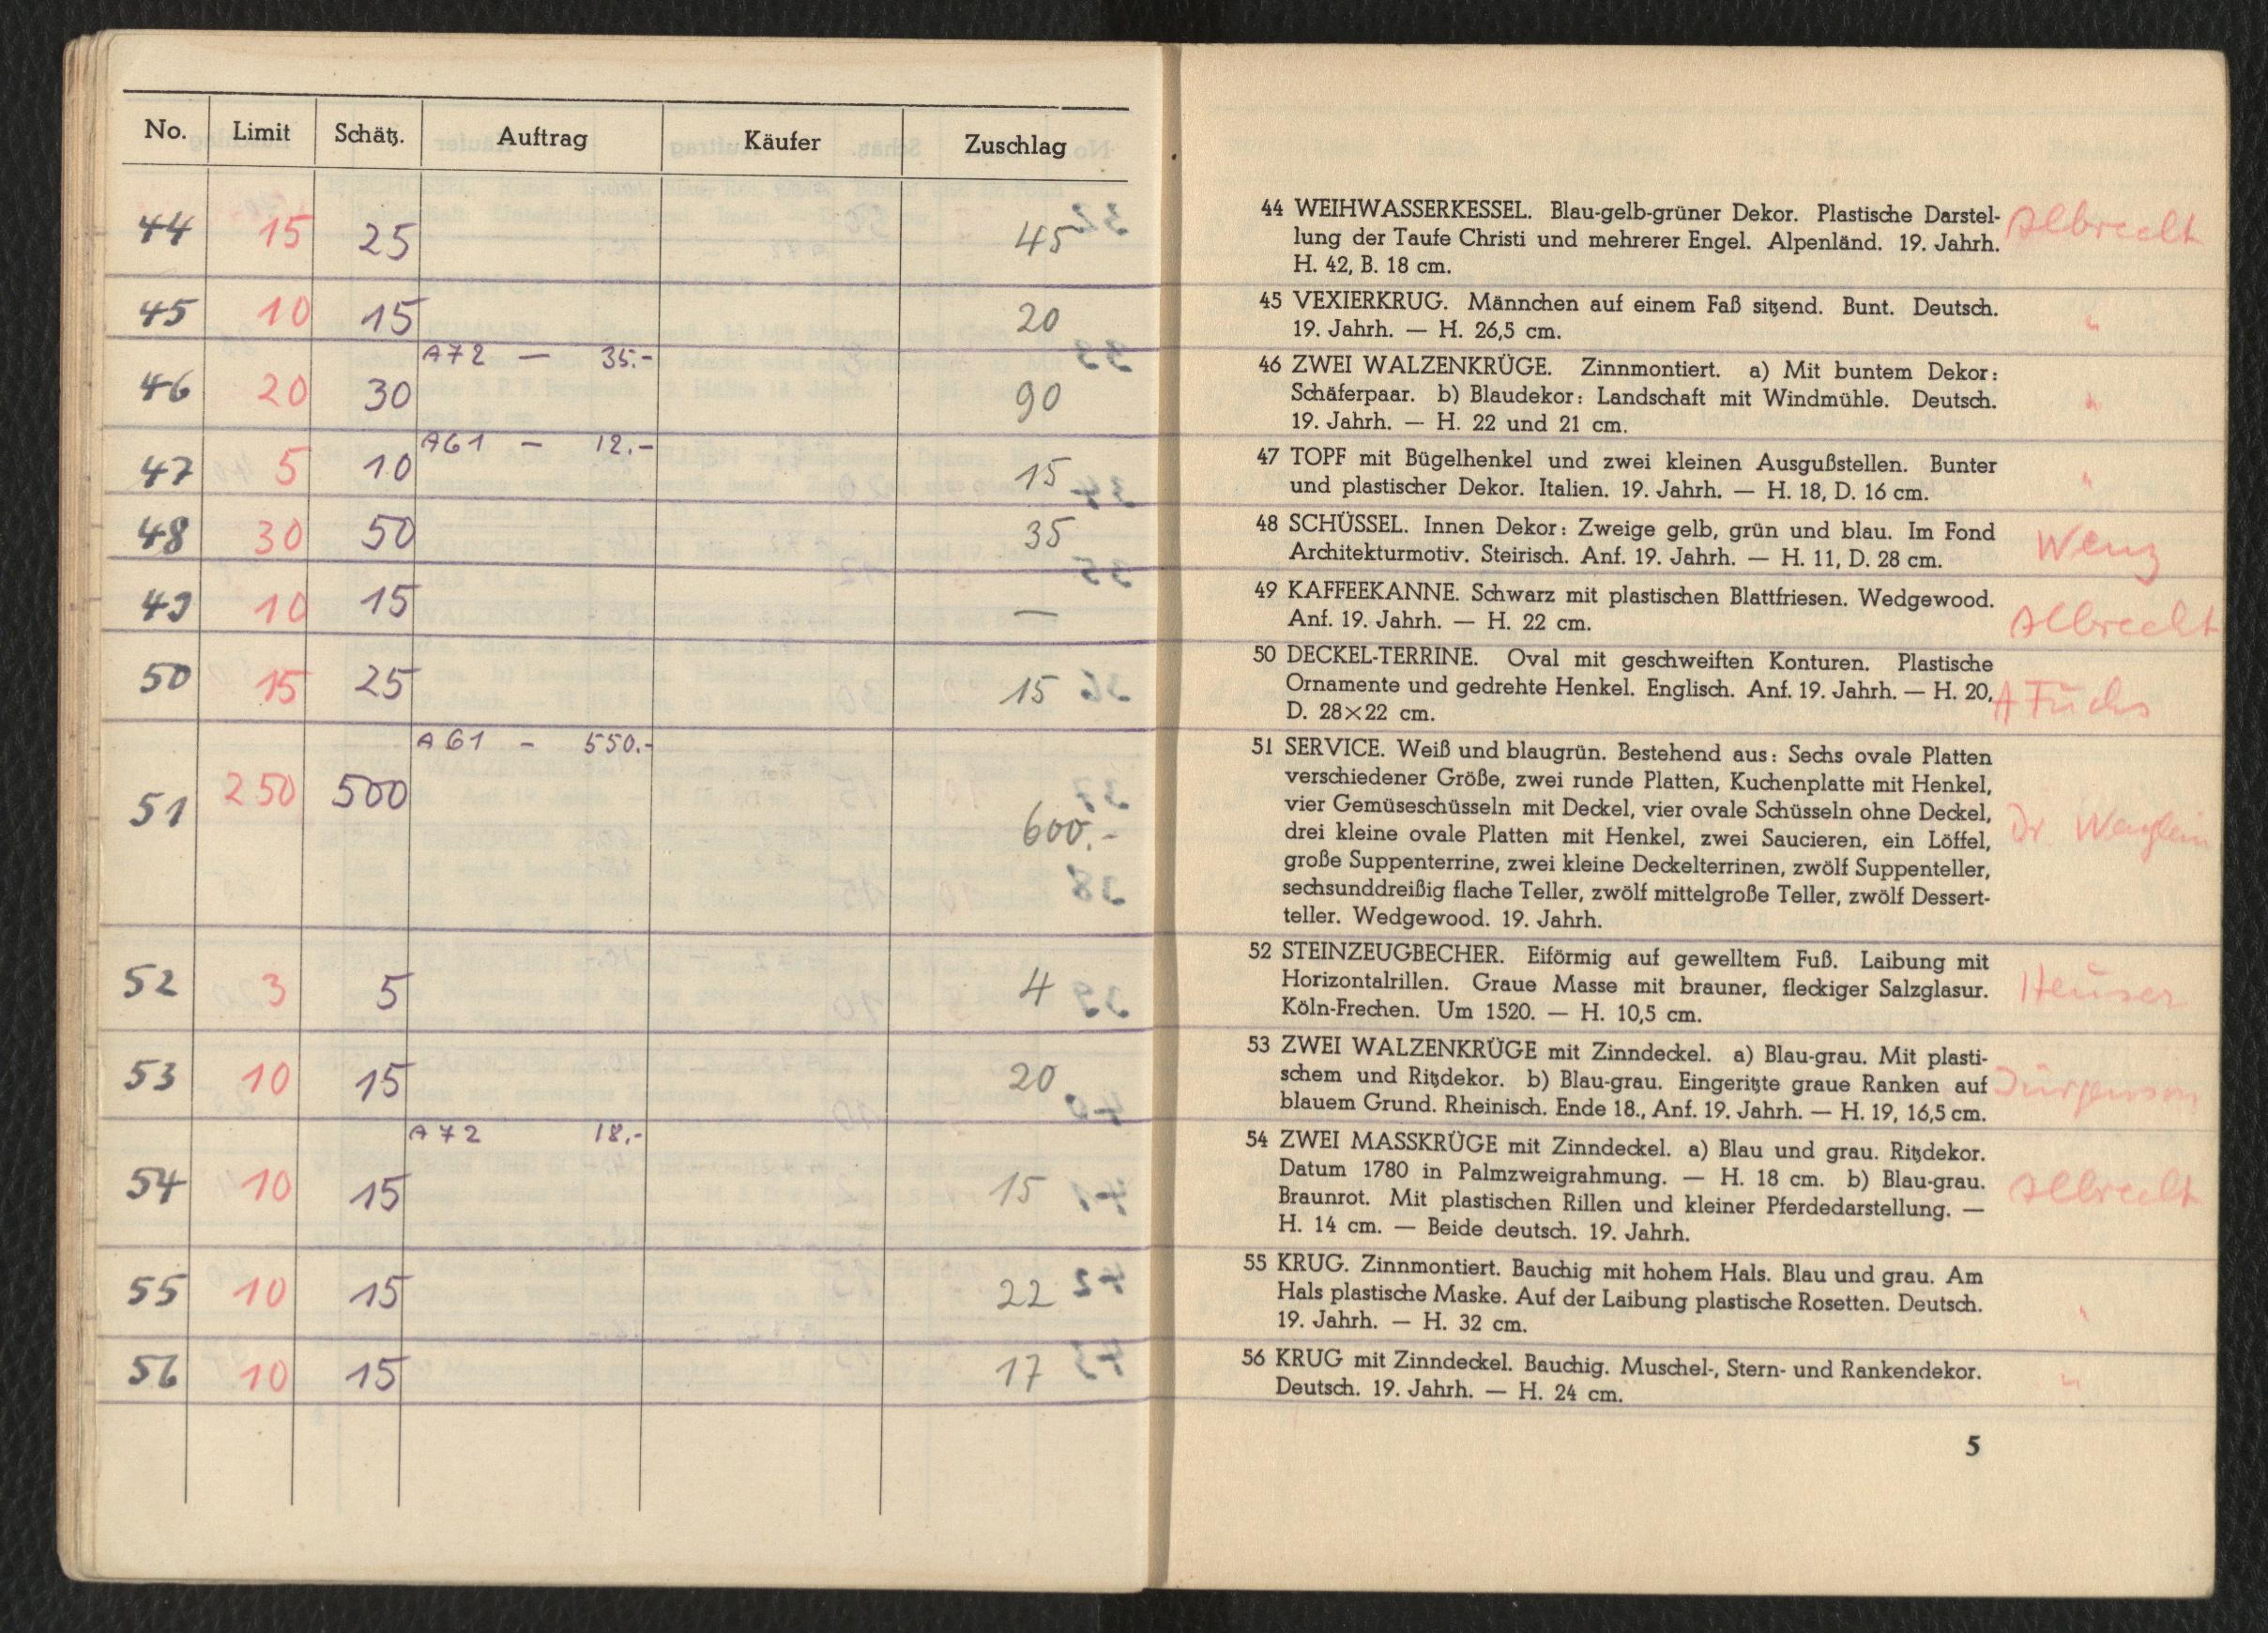 No. Limit Schätz. Auftrag Käufer Zuschlag
44 15 25 45
45 10 15 20
A72 — 35.-
46 20 30 90
A61 — 12.-
47 5 10 15
48 30 50 35
49 10 15 —
50 15 25 15
A61 - 550.-
51 250 500 600.-
52 3 5 4
53 10 15 20
A72 18.-
54 10 15 15
55 10 15 22
56 10 15 17
44 WEIHWASSERKESSEL. Blau-gelb-grüner Dekor. Plastische Darstel- Albrecht
lung der Taufe Christi und mehrerer Engel. Alpenländ. 19. Jahrh.
H. 42, B. 18 cm.
45 VEXIERKRUG. Männchen auf einem Faß sitzend. Bunt. Deutsch. "
19. Jahrh. — H. 26,5 cm.
46 ZWEI WALZENKRÜGE. Zinnmontiert. a) Mit buntem Dekor:
Schäferpaar. b) Blaudekor: Landschaft mit Windmühle. Deutsch. "
19. Jahrh. — H. 22 und 21 cm.
47 TOPF mit Bügelhenkel und zwei kleinen Ausgußstellen. Bunter "
und plastischer Dekor. Italien. 19. Jahrh. — H. 18, D. 16 cm.
48 SCHÜSSEL. Innen Dekor: Zweige gelb, grün und blau. Im Fond Wenz
Architekturmotiv. Steirisch. Anf. 19. Jahrh. — H. 11, D. 28 cm.
49 KAFFEEKANNE. Schwarz mit plastischen Blattfriesen. Wedgewood.
Anf. 19. Jahrh. — H. 22 cm. Albrecht
50 DECKEL-TERRINE. Oval mit geschweiften Konturen. Plastische
Ornamente und gedrehte Henkel. Englisch. Anf. 19. Jahrh. — H. 20, A Fuchs
D. 28×22 cm.
51 SERVICE. Weiß und blaugrün. Bestehend aus: Sechs ovale Platten
verschiedener Größe, zwei runde Platten, Kuchenplatte mit Henkel,
vier Gemüseschüsseln mit Deckel, vier ovale Schüsseln ohne Deckel,
drei kleine ovale Platten mit Henkel, zwei Saucieren, ein Löffel, Dr.
große Suppenterrine, zwei kleine Deckelterrinen, zwölf Suppenteller,
sechsunddreißig flache Teller, zwölf mittelgroße Teller, zwölf Dessert-
teller. Wedgewood. 19. Jahrh.
52 STEINZEUGBECHER. Eiförmig auf gewelltem Fuß. Laibung mit
Horizontalrillen. Graue Masse mit brauner, fleckiger Salzglasur. Heuser
Köln-Frechen. Um 1520. — H. 10,5 cm.
53 ZWEI WALZENKRÜGE mit Zinndeckel. a) Blau-grau. Mit plasti-
schem und Ritzdekor. b) Blau-grau. Eingeritzte graue Ranken auf
blauem Grund. Rheinisch. Ende 18., Anf. 19. Jahrh. — H. 19, 16,5 cm.
54 ZWEI MASSKRÜGE mit Zinndeckel. a) Blau und grau. Ritzdekor.
Datum 1780 in Palmzweigrahmung. — H. 18 cm. b) Blau-grau. Albrecht
Braunrot. Mit plastischen Rillen und kleiner Pferdedarstellung. —
H. 14 cm. — Beide deutsch. 19. Jahrh.
55 KRUG. Zinnmontiert. Bauchig mit hohem Hals. Blau und grau. Am
Hals plastische Maske. Auf der Laibung plastische Rosetten. Deutsch. "
19. Jahrh. — H. 32 cm.
56 KRUG mit Zinndeckel. Bauchig. Muschel-, Stern- und Rankendekor. "
Deutsch. 19. Jahrh. — H. 24 cm.
5